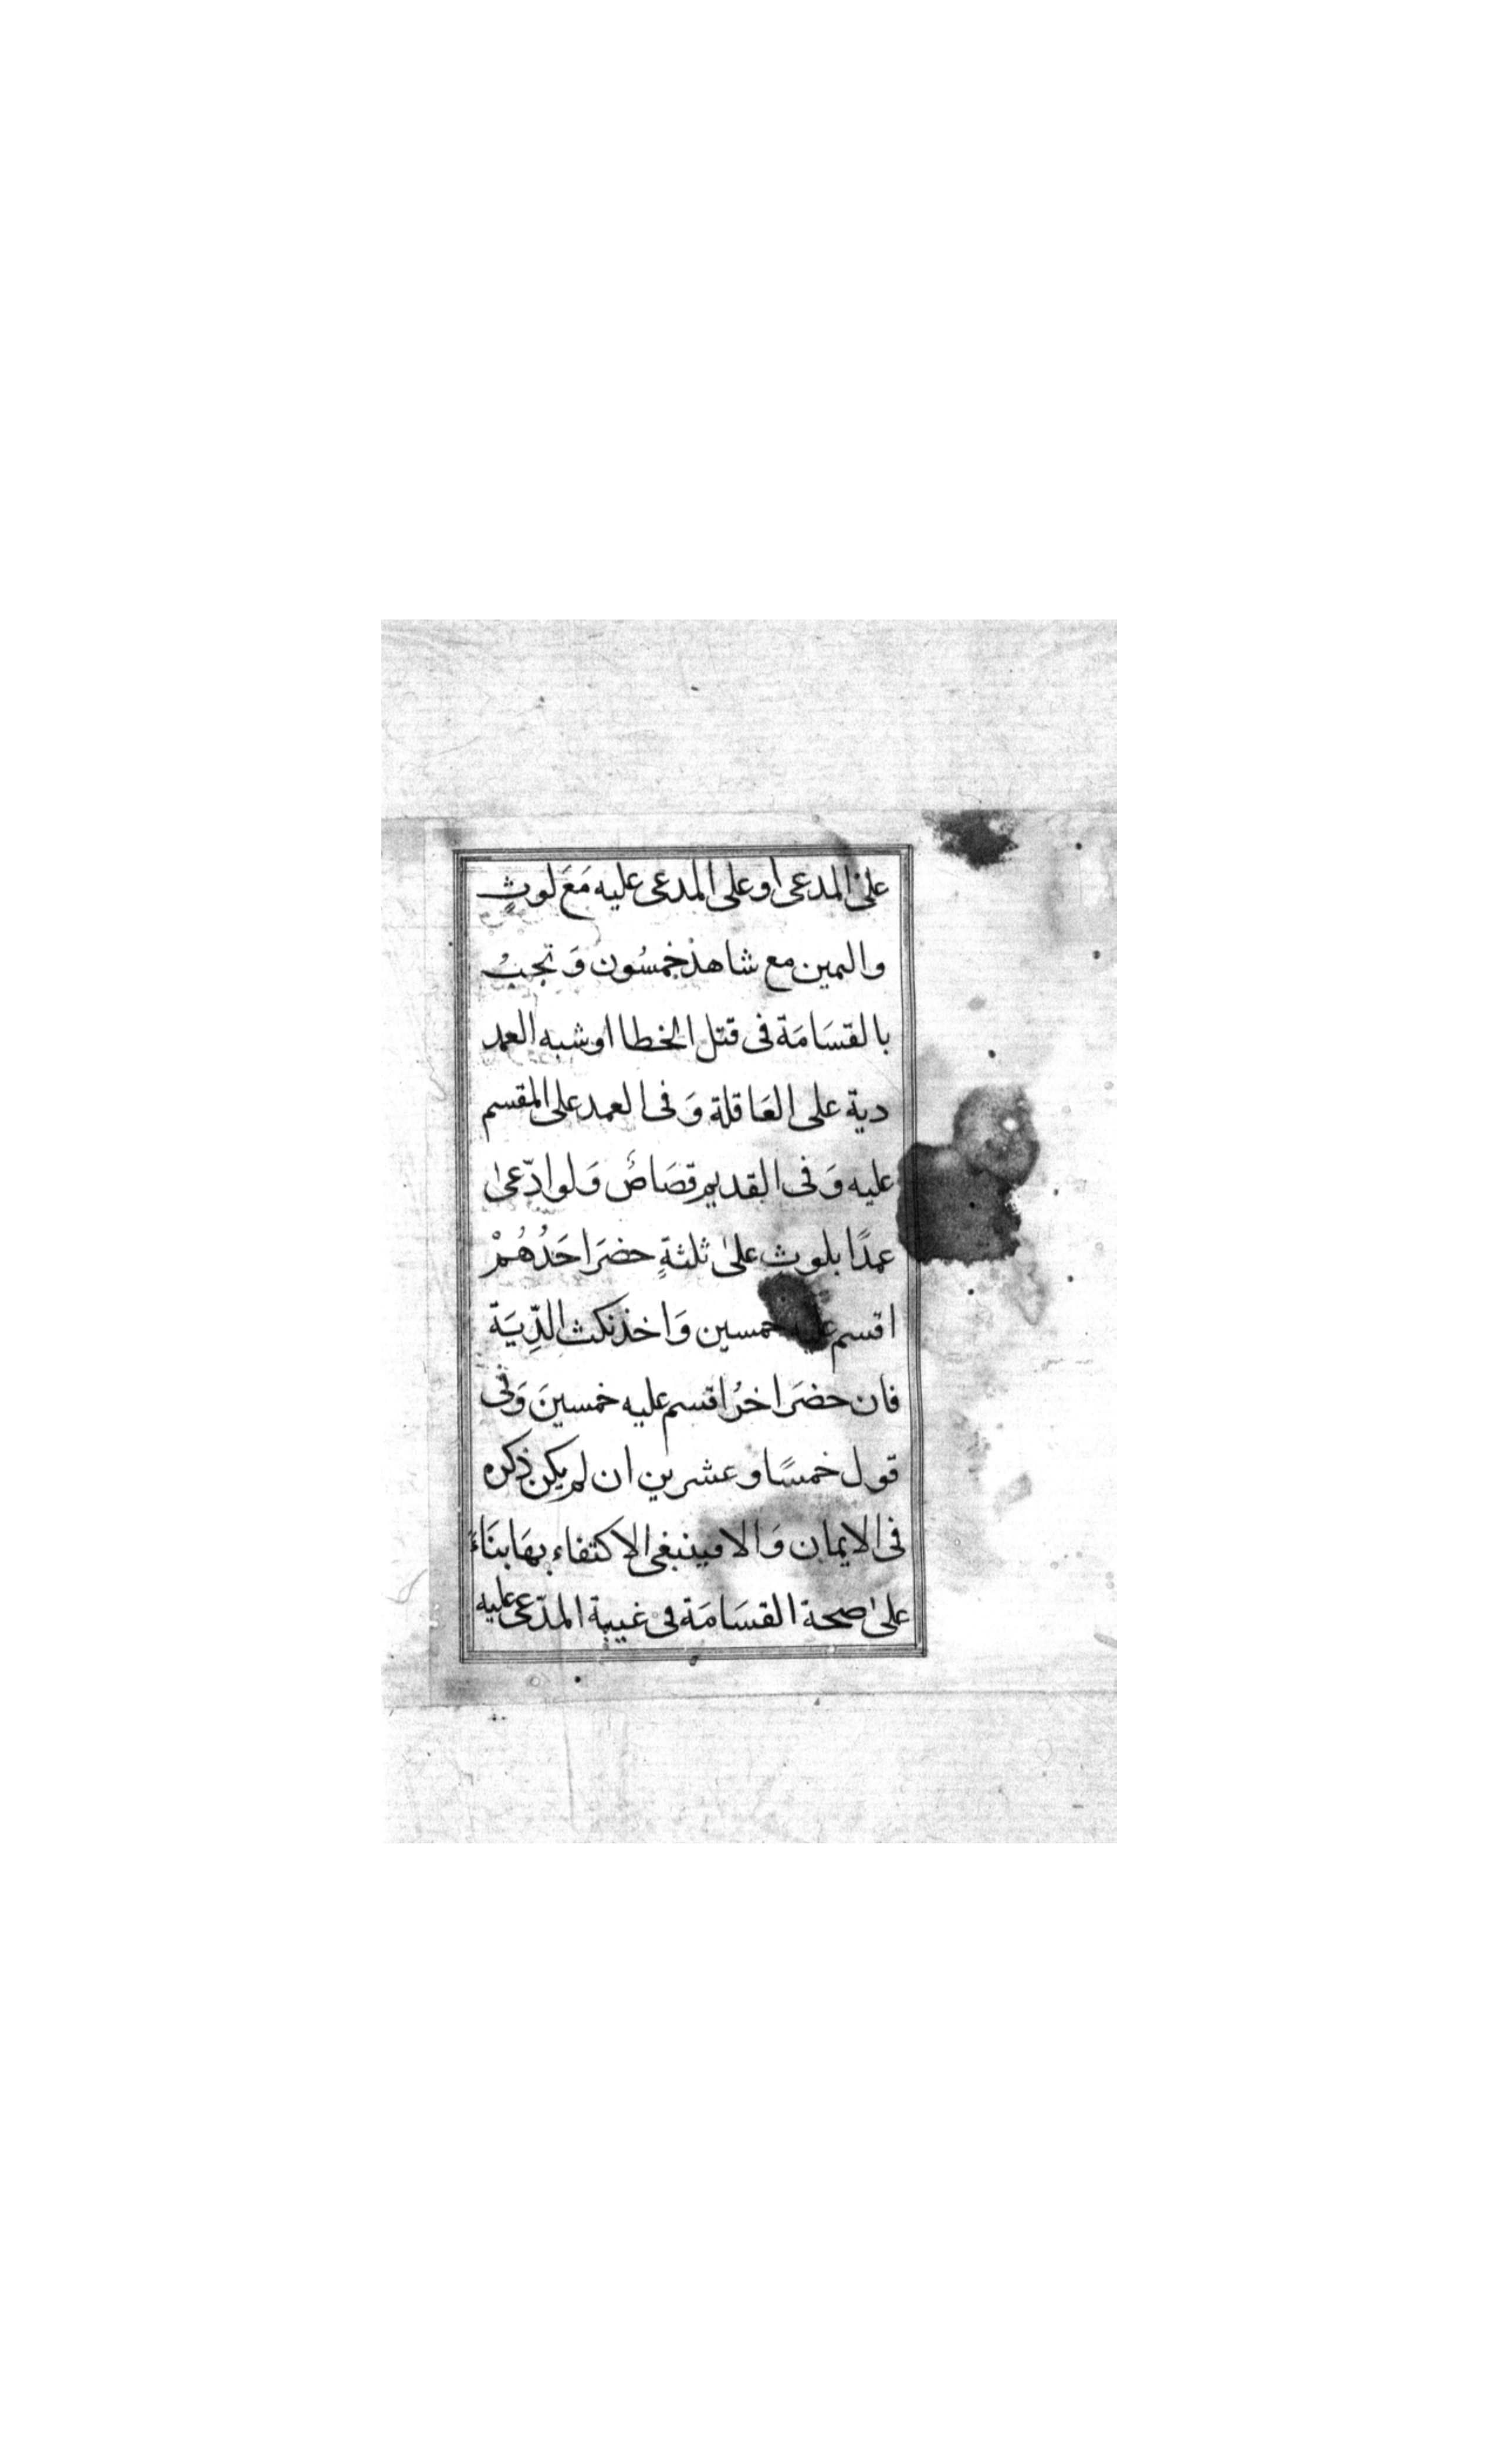 على المدعى او على المدعى عليه مَعَ لوثٍ
واليمين مع شاهد خمسُون وَ تجبُ
بالقسَامَة فى قتل الخطا او شبه العمد
دية على العَاقلة وَفى العمد على المقسم
عليه وَفى القديم قصَاصٌ وَلو ادّعىٰ
عمدًا بلوثٍ علىٰ ثلثةٍ حضرَ احَدُهُمْ
اقسم عليه خمسين وَاخذ نكث الدِّيَة
فان حضرَ اخرُ اقسم عليه خمسينَ وَفى
قول خمسًا وعشرين ان لم يكن ذكره
فى الايمان وَالا فينبغى الاكتفاء بهَا بنَاءً
علىٰ صحة القسَامَة فى غيبة المدّعى عليه